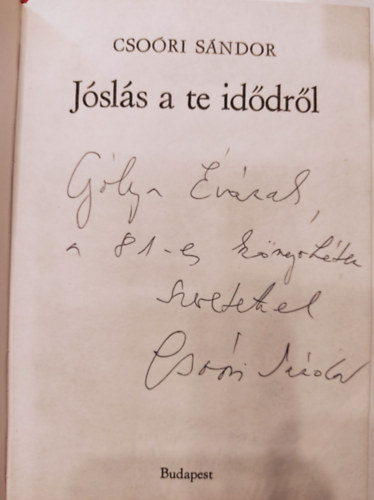 CSOÓRI SÁNDOR
Jóslás a te idődről
Gólya Évának,
a 81-es könyvhéten
szeretettel
Csoóri Sándor
Budapest